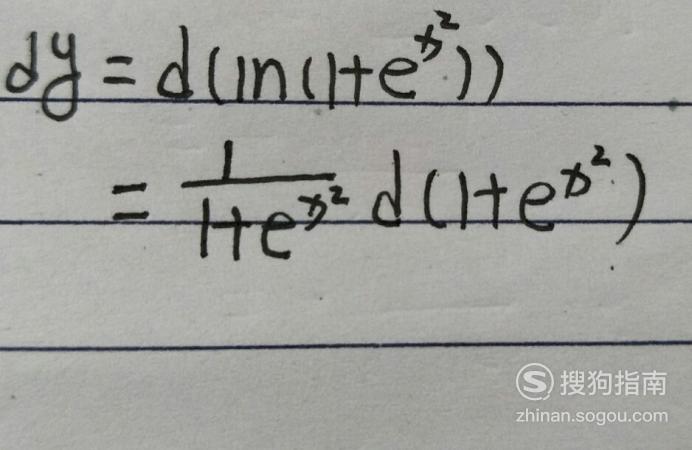 dy = d(ln(1+e^{x^2}))
= \frac{1}{1+e^{x^2}} d(1+e^{x^2})
搜狗指南
zhinan.sogou.com